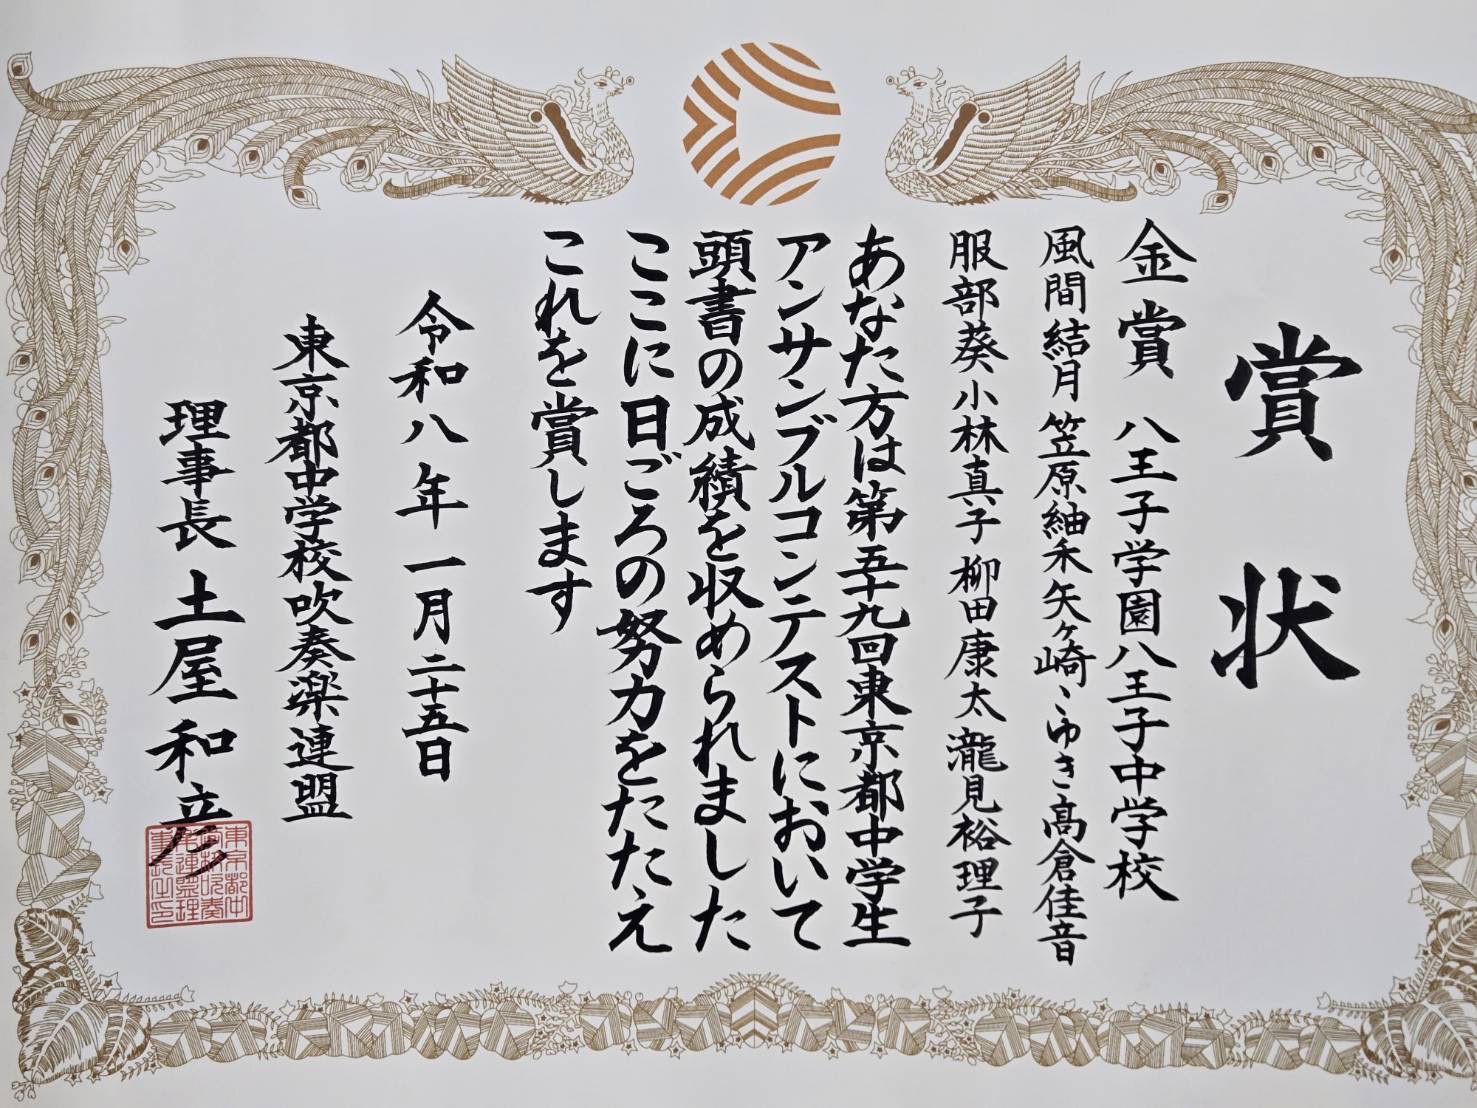 賞状
金賞 八王子学園八王子中学校
風間結月 笠原紬禾 矢ヶ崎こゆき 高倉佳音
服部葵 小林真子 柳田康太 瀧見裕理子
あなた方は第五十九回東京都中学生
アンサンブルコンテストにおいて
頭書の成績を収められました
ここに日ごろの努力をたたえ
これを賞します
令和八年一月二十五日
東京都中学校吹奏楽連盟
理事長 土屋和彦